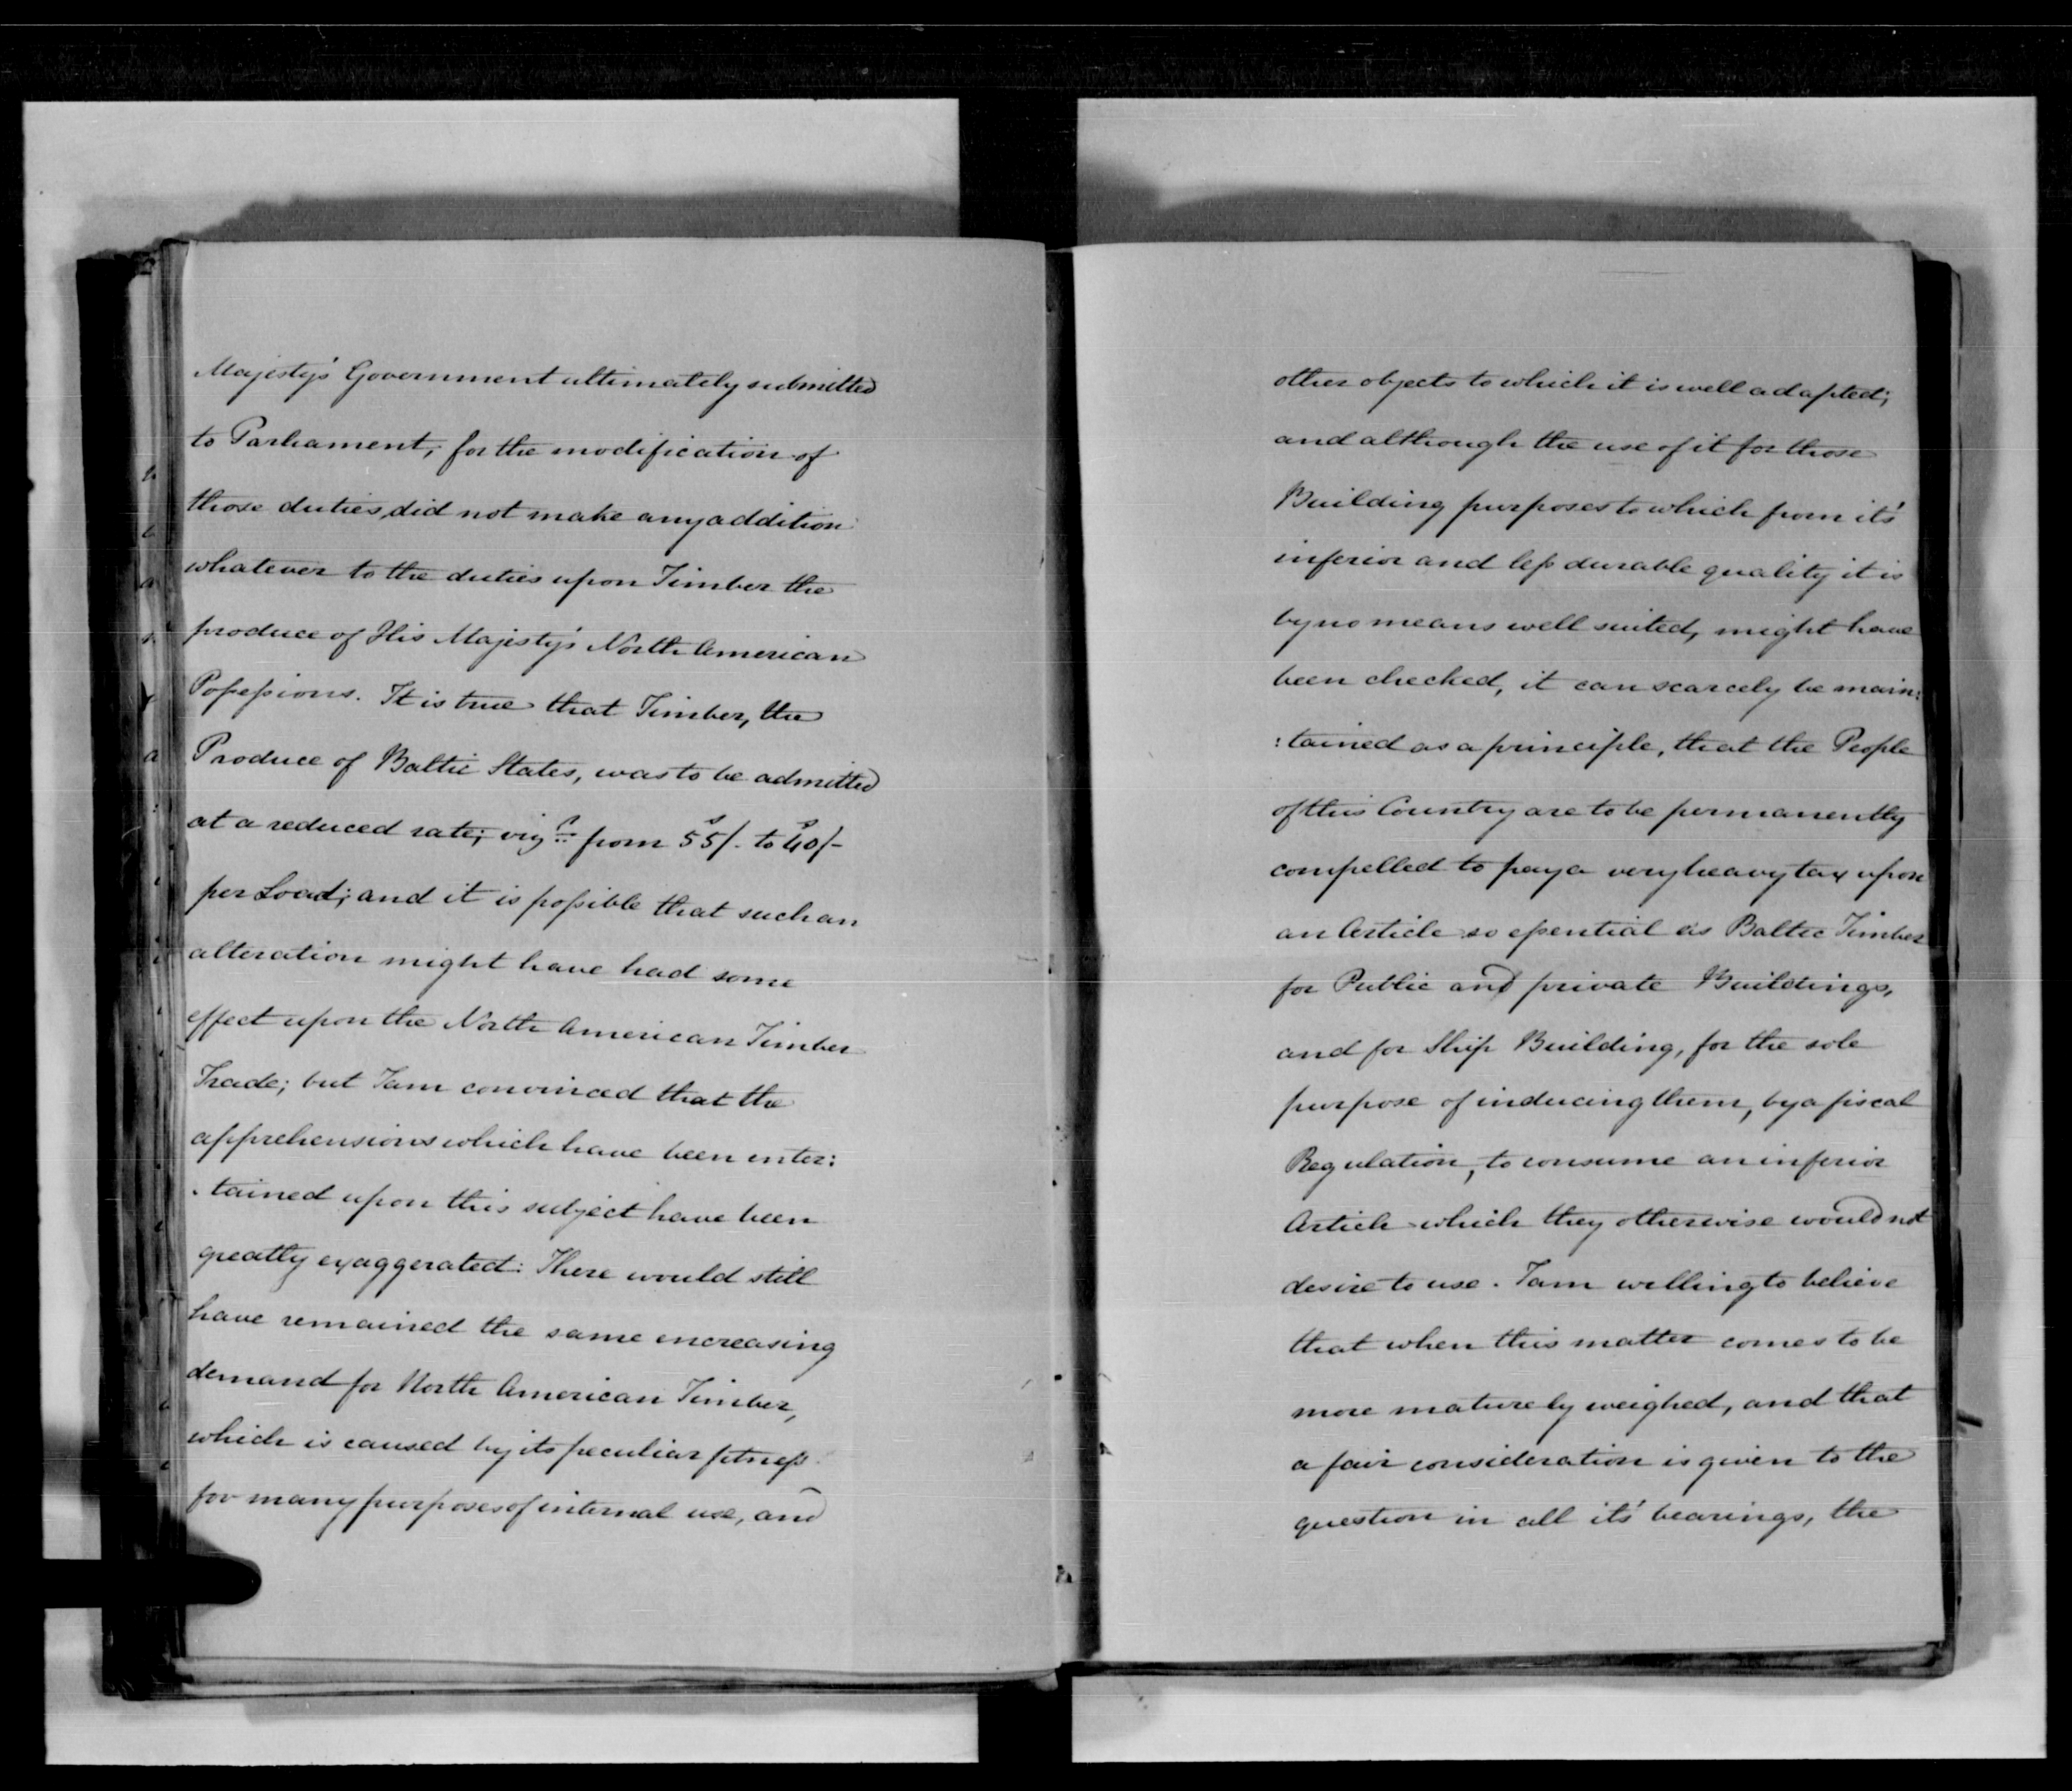 Majesty's Government ultimately submitted
to Parliament, for the modification of
those duties, did not make any addition
whatever to the duties upon Timber the
produce of His Majesty's North American
Possessions. It is true that Timber, the
Produce of Baltic States, was to be admitted
at a reduced rate; vizt. from 55s/- to 40s/-
per Load; and it is possible that such an
alteration might have had some
effect upon the North American Timber
Trade; but I am convinced that the
apprehensions which have been enter:
:tained upon this subject have been
greatly exaggerated: There would still
have remained the same encreasing
demand for North American Timber,
which is caused by its peculiar fitness
for many purposes of internal use, and
other objects to which it is well adapted;
and although the use of it for those
Building purposes to which from it's
inferior and less durable quality it is
by no means well suited, might have
been checked, it can scarcely be main:
:tained as a principle, that the People
of this Country are to be permanently
compelled to pay a very heavy tax upon
an Article so essential as Baltic Timber
for Public and private Buildings,
and for Ship Building, for the sole
purpose of inducing them, by a fiscal
Regulation, to consume an inferior
Article which they otherwise would not
desire to use. I am willing to believe
that when this matter comes to be
more maturely weighed, and that
a fair consideration is given to the
question in all it's bearings, the